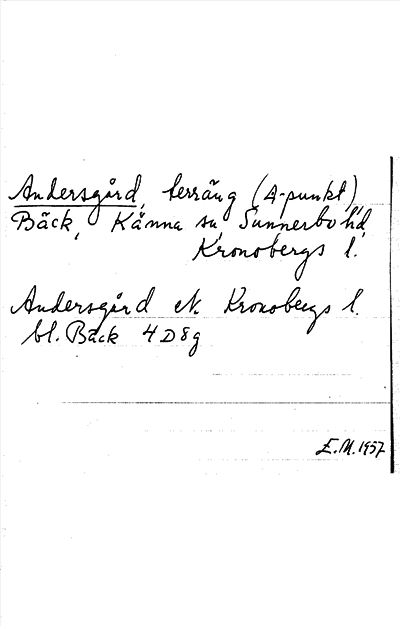 Andersgård, terräng (A-punkt),
Bäck, Känna sn, Sunnerbo hd,
Kronobergs l.
Andersgård ek. Kronobergs l.
bl. Bäck 4D8g
E.M. 1957